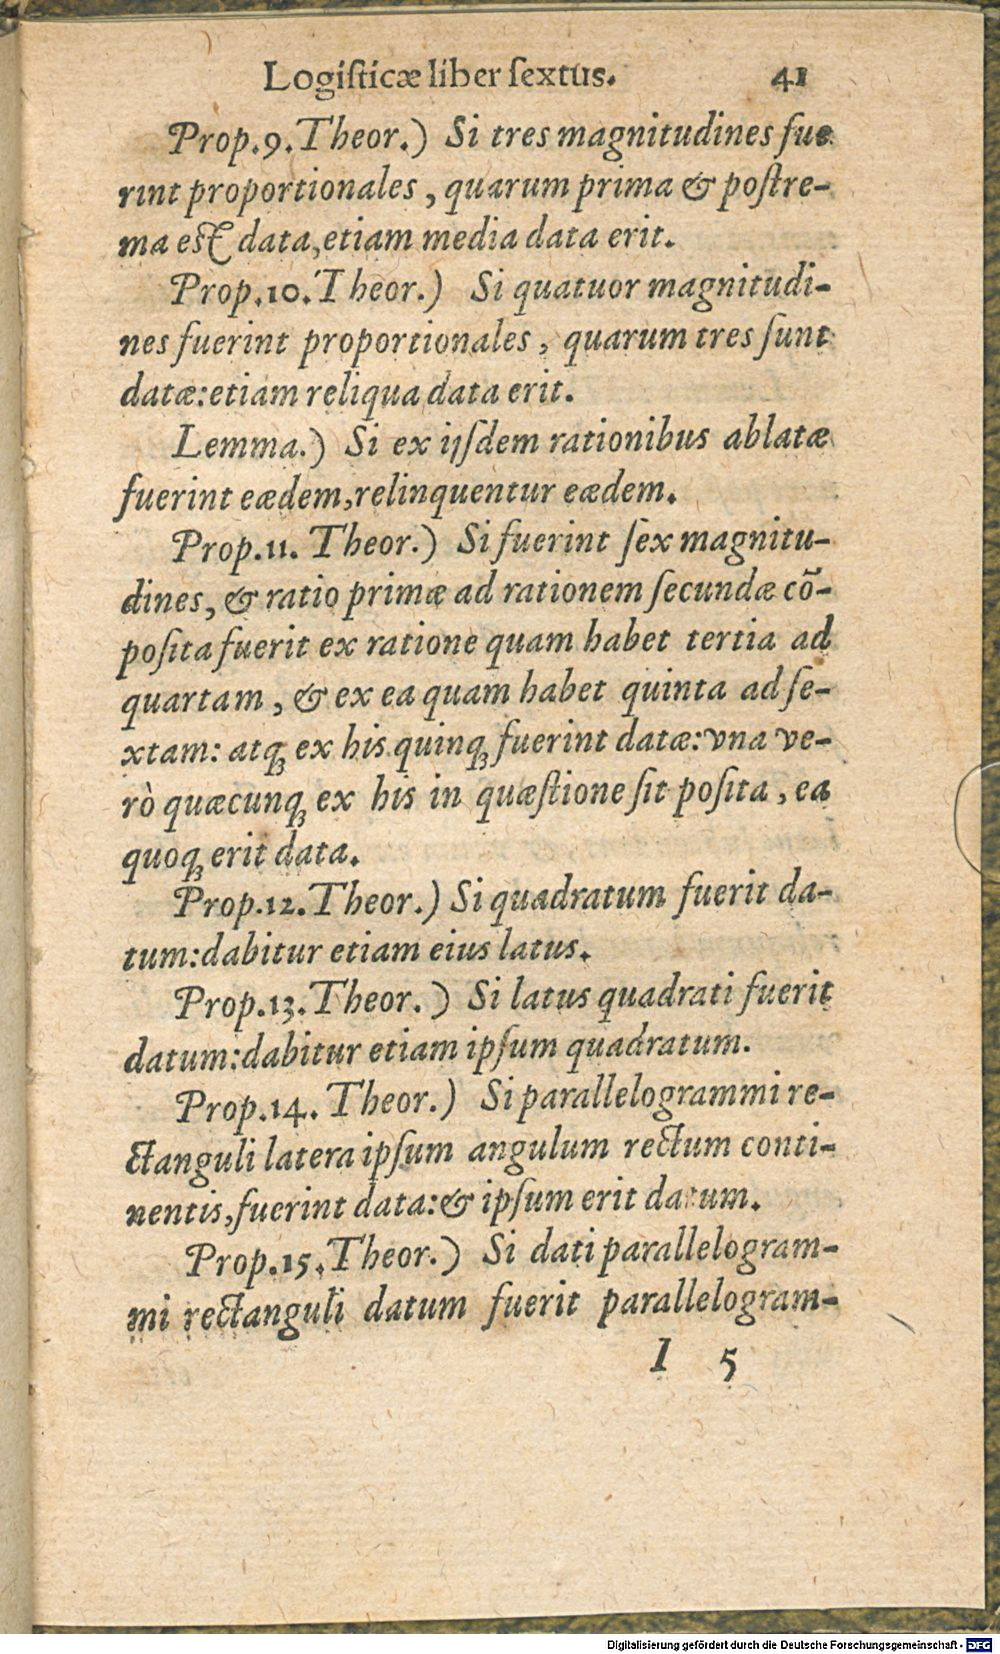 Logiſticæ liber ſextus. 41
Prop.9.Theor.) Si tres magnitudines fue
rint proportionales, quarum prima & poſtre-
ma est data,etiam media data erit.
Prop.10.Theor.) Si quatuor magnitudi-
nes fuerint proportionales, quarum tres ſunt
datæ:etiam reliqua data erit.
Lemma.) Si ex ijſdem rationibus ablatæ
fuerint eædem,relinquentur eædem.
Prop.11. Theor.) Si fuerint ſex magnitu-
dines, & ratio primæ ad rationem ſecundæ cõ-
poſita fuerit ex ratione quam habet tertia ad
quartam, & ex ea quam habet quinta ad ſe-
xtam: atqꝫ ex his quinqꝫ fuerint datæ:vna ve-
rò quæcunqꝫ ex his in quæſtione ſit poſita, ea
quoqꝫ erit data.
Prop.12.Theor.) Si quadratum fuerit da-
tum:dabitur etiam eius latus.
Prop.13.Theor.) Si latus quadrati fuerit
datum:dabitur etiam ipſum quadratum.
Prop.14. Theor.) Si parallelogrammi re-
ctanguli latera ipſum angulum rectum conti-
nentis,fuerint data:& ipſum erit datum.
Prop.15.Theor.) Si dati parallelogram-
mi rectanguli datum fuerit parallelogram-
I 5
Digitalisierung gefördert durch die Deutsche Forschungsgemeinschaft - DFG